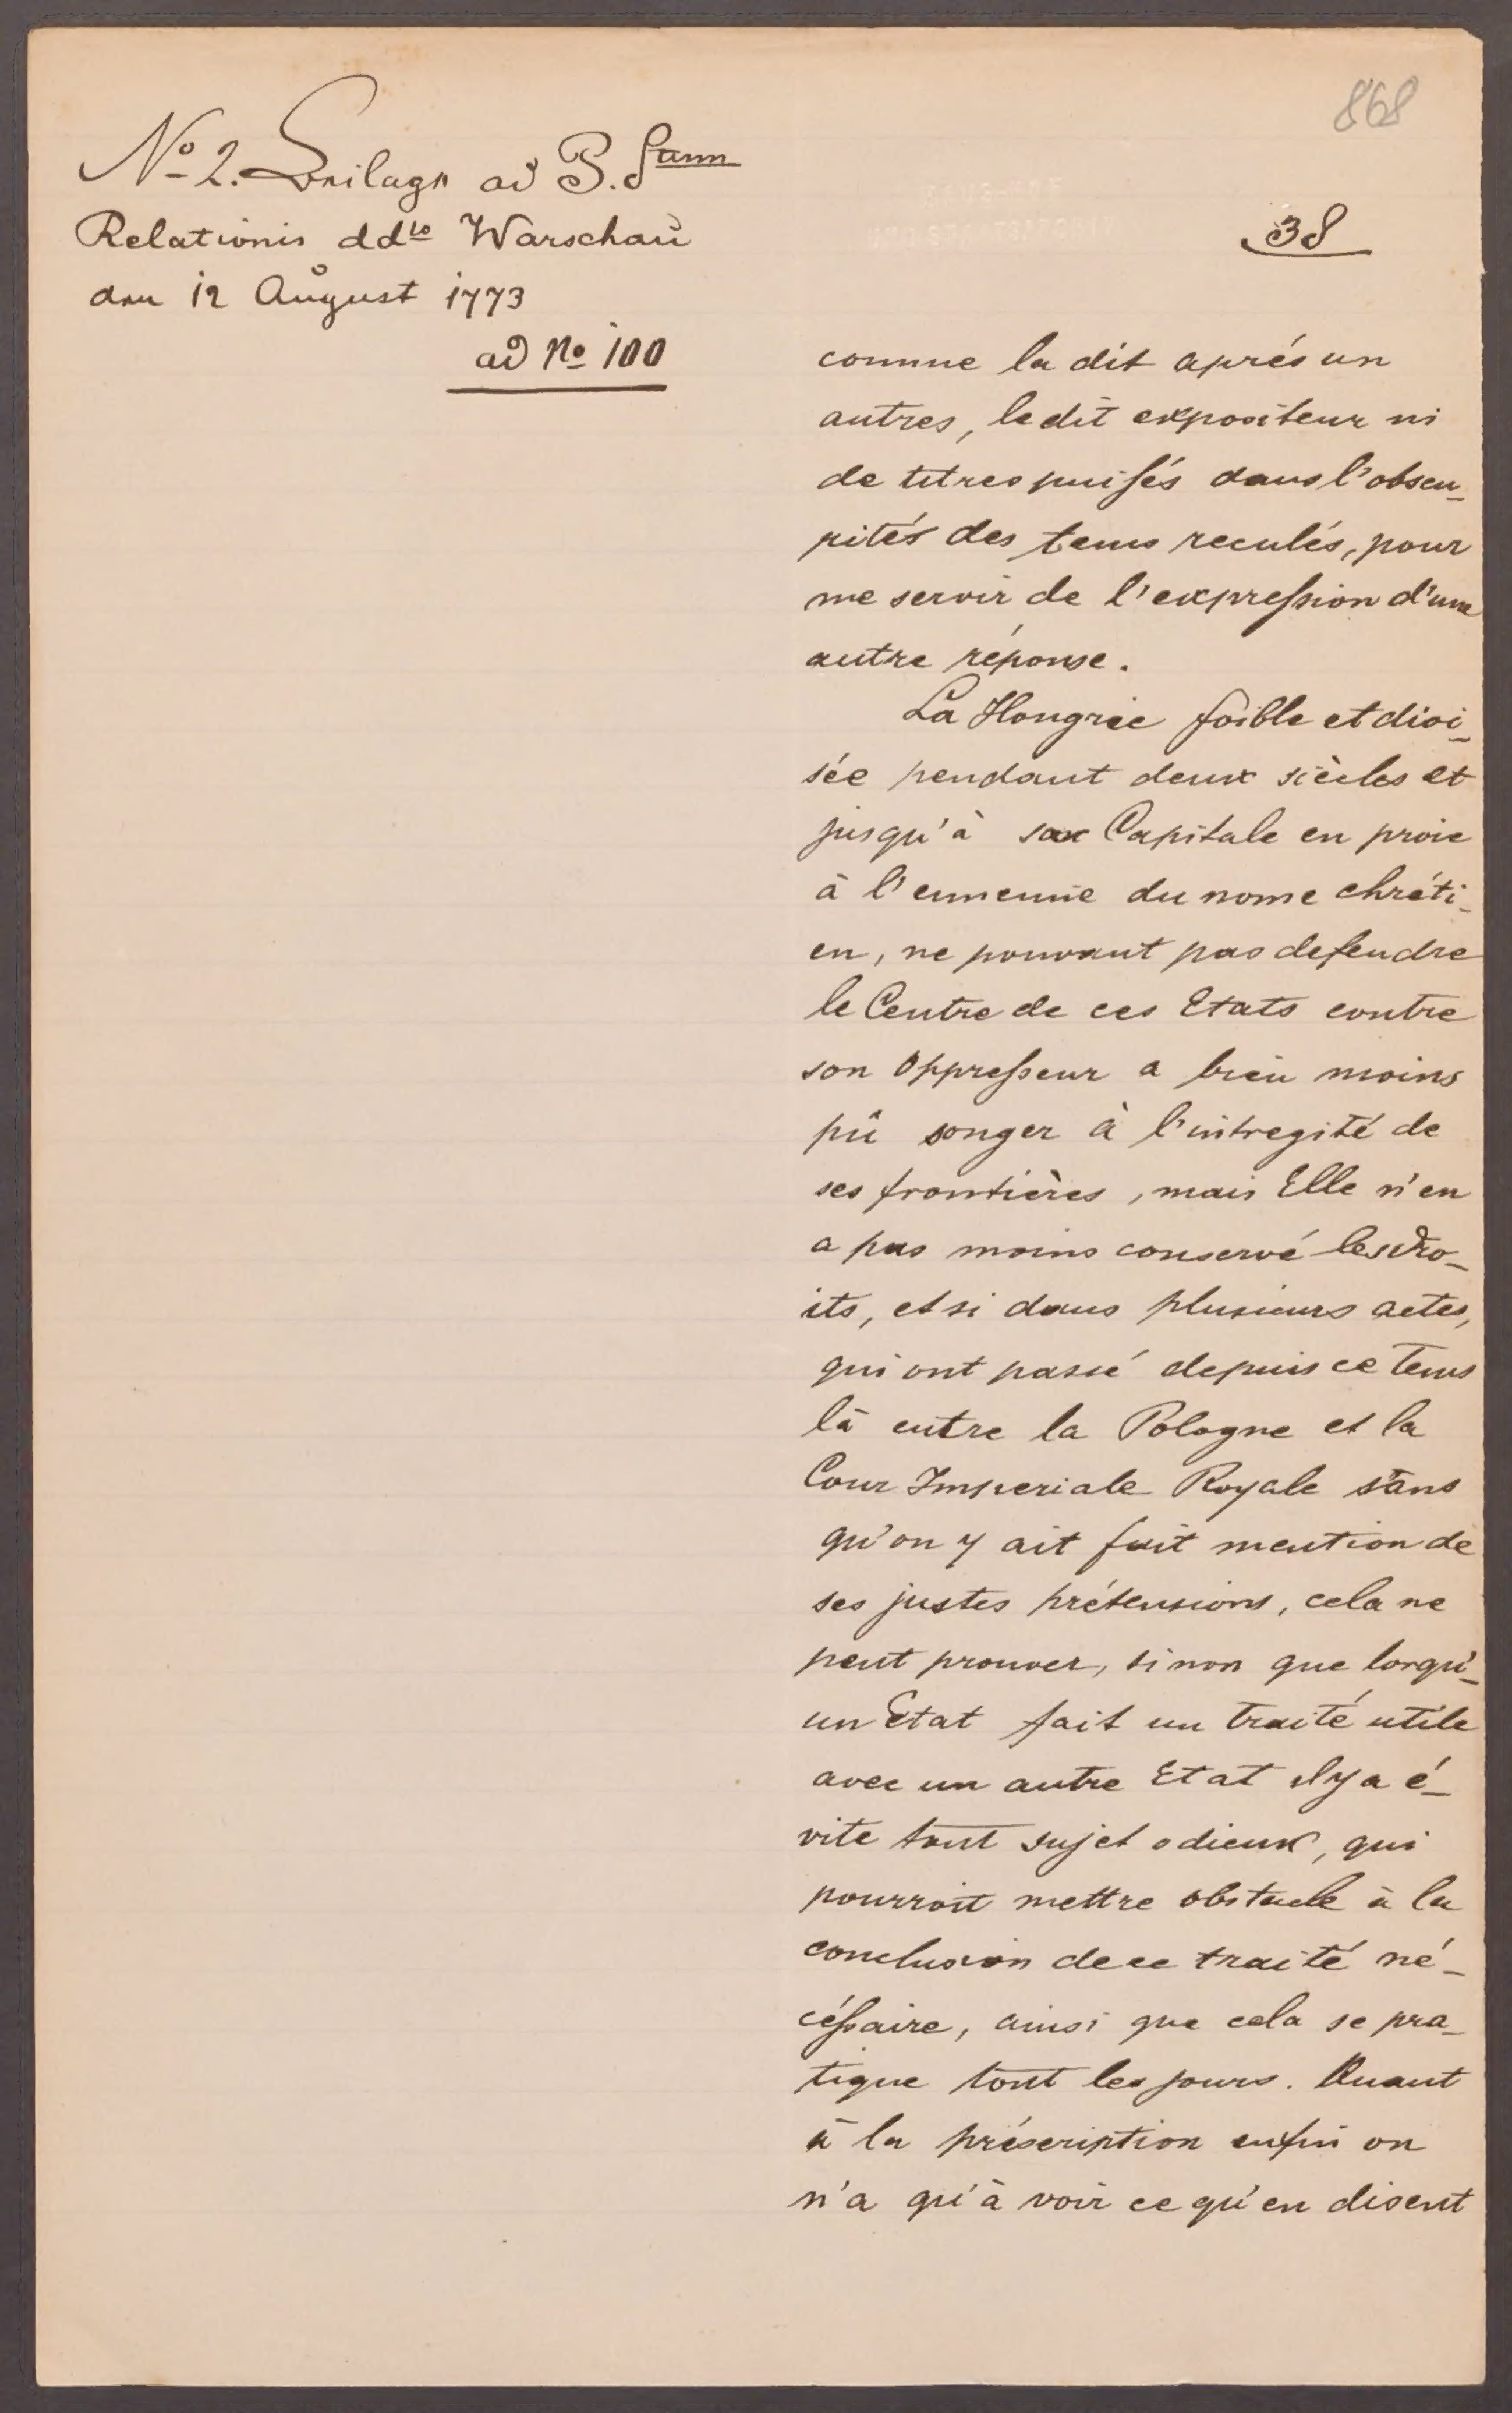 868
No 2. Beilage ad P. Sum
Relationis ddto Warschau
den 12 August 1773
ad No 100
38
comme la dit aprés un
autres, ledit expositeur ni
de titres puisés dans l'obscu_
rités des tems reculés, pour
me servir de l'expression d'une
autre réponse.
La Hongrie foible et divi_
sée pendant deux siècles et
jusqu'à sa Capitale en proie
à l'ennemie du nome chréti_
en, ne pouvant pas defendre
le Centre de ces Etats contre
son Oppresseur a bien moins
pû songer à l'intregité de
ses frontières, mais Elle n'en
a pas moins conservé les dro_
its, et si dans plusieurs actes,
qui ont passé depuis ce tems
là entre la Pologne et la
Cour Imperiale Royale sans
qu'on y ait fait mention de
ses justes prétensions, cela ne
peut prouver, sinon que lorqu'_
un Etat fait un traité utile
avec un autre Etat il y a é_
vite tout sujet odieux, qui
pourroit mettre obstacle à la
conclusion de ce traité né_
céssaire, ainsi que cela se pra_
tique tout les jours. Quant
à la préscription enfin on
n'a qu'à voir ce qu'en disent